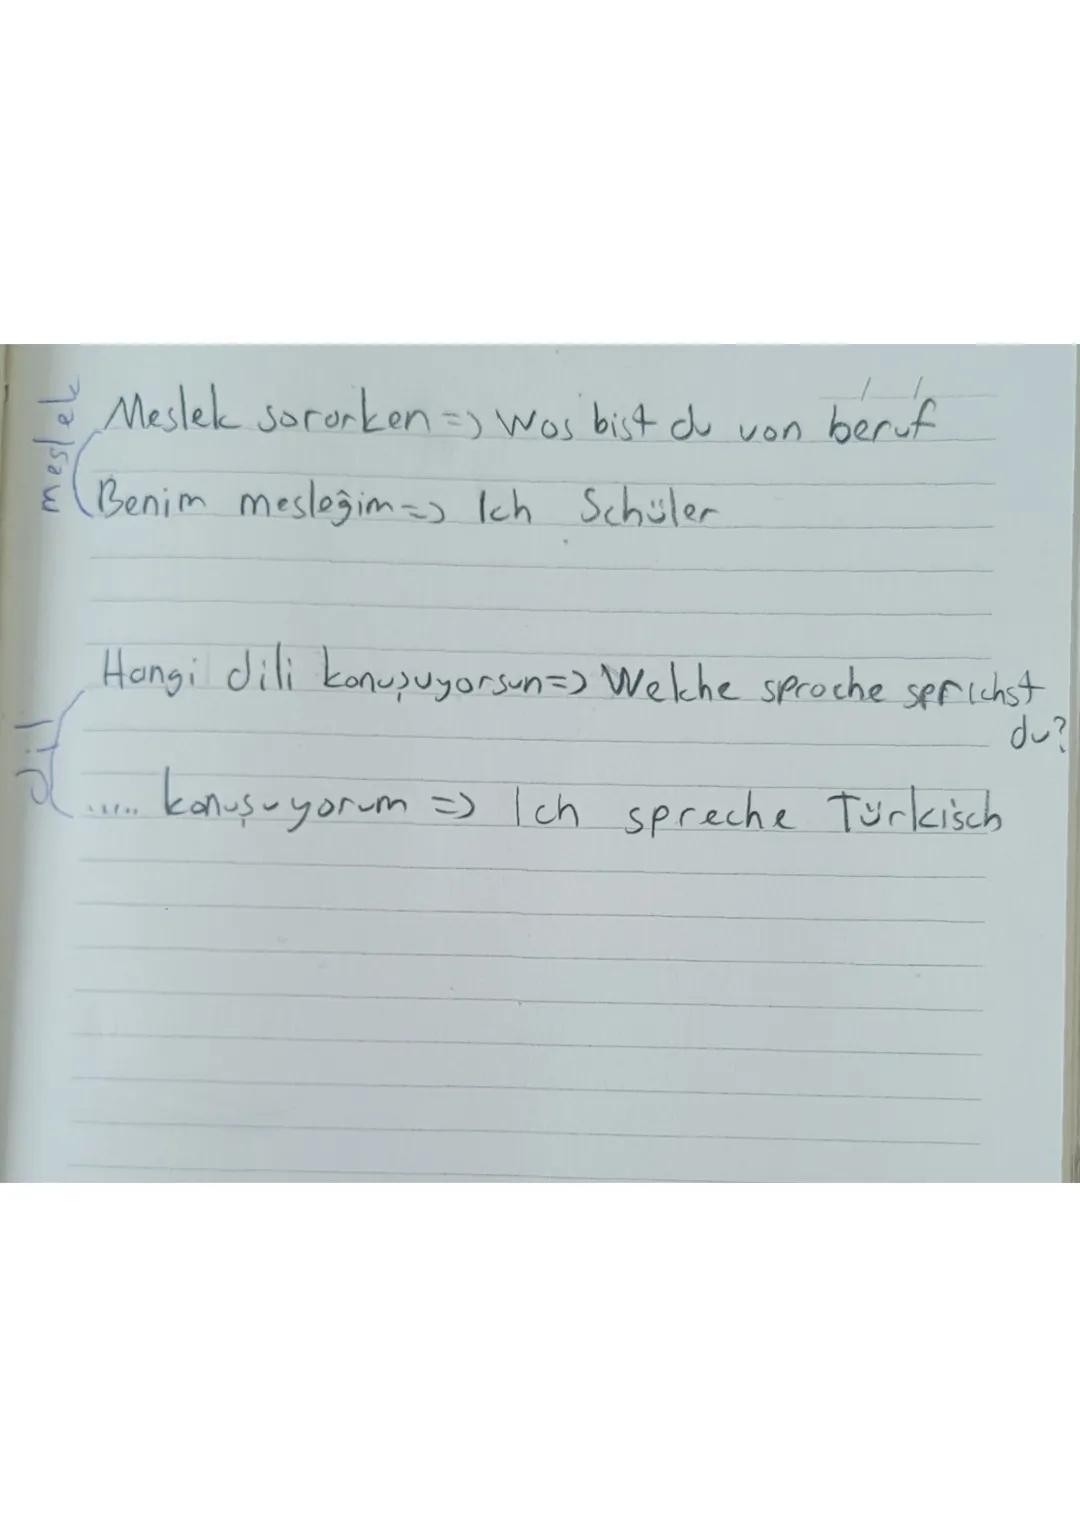 meslek
Meslek sorarken => Was bist du von beruf
Benim mesleğim => Ich Schüler
dil
Hangi dili konuşuyorsun => Welche sprache sprichst
du?
..... konuşuyorum => Ich spreche Türkisch